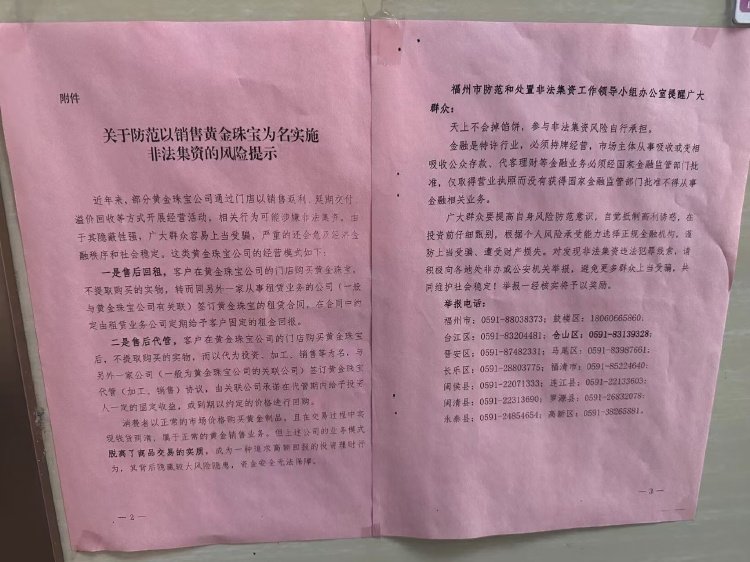 附件
关于防范以销售黄金珠宝为名实施
非法集资的风险提示
近年来，部分黄金珠宝公司通过门店以销售返利、延期交付、
溢价回收等方式开展经营活动，相关行为可能涉嫌非法集资。由
于其隐蔽性强，广大群众容易上当受骗，严重的还会危及经济金
融秩序和社会稳定。这类黄金珠宝公司的经营模式如下：
一是售后回租，客户在黄金珠宝公司的门店购买黄金珠宝，
不提取购买的实物，转而同另外一家从事租赁业务的公司（一般
与黄金珠宝公司有关联）签订黄金珠宝的租赁合同，在合同中约
定由租赁业务公司定期给予客户固定的租金回报。
二是售后代管，客户在黄金珠宝公司的门店购买黄金珠宝
后，不提取购买的实物，而以代为投资、加工、销售等为名，与
另外一家公司（一般为黄金珠宝公司的关联公司）签订黄金珠宝
代管（加工、销售）协议，由关联公司承诺在代管期内给予投资
人一定的固定收益，或到期以约定的价格进行回购。
消费者以正常的市场价格购买黄金制品，且在交易过程中实
现钱货两清，属于正常的黄金销售业务。但上述公司的业务模式
脱离了商品交易的实质，成为一种追求高额回报的投资理财行
为，其背后隐藏较大风险隐患，资金安全无法保障。
— 2 —
福州市防范和处置非法集资工作领导小组办公室提醒广大
群众：
天上不会掉馅饼，参与非法集资风险自行承担。
金融是特许行业，必须持牌经营，市场主体从事吸收或变相
吸收公众存款、代客理财等金融业务必须经国家金融监管部门批
准，仅取得营业执照而没有获得国家金融监管部门批准不得从事
金融相关业务。
广大群众要提高自身风险防范意识，自觉抵制高利诱惑，在
投资前仔细甄别，根据个人风险承受能力选择正规金融机构，谨
防上当受骗、遭受财产损失。对发现非法集资违法犯罪线索，请
积极向各地处非办或公安机关举报，避免更多群众上当受骗，共
同维护社会稳定！举报一经核实将予以奖励。
举报电话：
福州市：0591-88038373；鼓楼区：18060665860；
台江区：0591-83204481；仓山区：0591-83139328；
晋安区：0591-87482331；马尾区：0591-83987661；
长乐区：0591-28803775；福清市：0591-85224640；
闽侯县：0591-22071333；连江县：0591-22133603；
闽清县：0591-22313690；罗源县：0591-26832078；
永泰县：0591-24854654；高新区：0591-38265881。
— 3 —